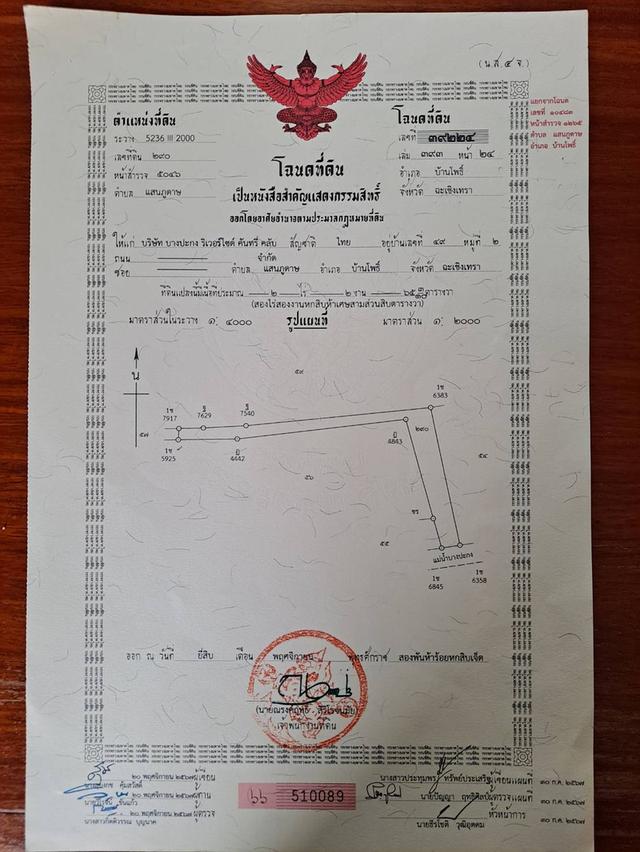 (น.ส.๔ จ.)
ตำแหน่งที่ดิน
ระวาง 5236 III 2000
เลขที่ดิน ๒๙๐
หน้าสำรวจ ๕๐๔๖
ตำบล แสนภูดาษ
โฉนดที่ดิน
เลขที่ ๓๙๒๒๔
เล่ม ๓๙๓ หน้า ๒๔
อำเภอ บ้านโพธิ์
จังหวัด ฉะเชิงเทรา
แยกจากโฉนด
เลขที่ ๑๐๔๘๓
หน้าสำรวจ ๑๒๖๕
ตำบล แสนภูดาษ
อำเภอ บ้านโพธิ์
โฉนดที่ดิน
เป็นหนังสือสำคัญแสดงกรรมสิทธิ์
ออกโดยอาศัยอำนาจตามประมวลกฎหมายที่ดิน
ให้แก่ บริษัท บางปะกง ริเวอร์ไซด์ คันทรี่ คลับ สัญชาติ ไทย อยู่บ้านเลขที่ ๔๙ หมู่ที่ ๒
ถนน จำกัด
ซอย ตำบล แสนภูดาษ อำเภอ บ้านโพธิ์ จังหวัด ฉะเชิงเทรา
ที่ดินแปลงนี้มีเนื้อที่ประมาณ ๒ ไร่ ๒ งาน ๖๕ ตารางวา
(สองไร่สองงานหกสิบห้าเศษสามส่วนสิบตารางวา)
มาตราส่วนในระวาง ๑: ๔๐๐๐ รูปแผนที่ มาตราส่วน ๑: ๒๐๐๐
น
๕๙
๕๗
1ช
7917
ฐ
7629
ฐ
7540
1ช
6383
1ช
5925
ฎ
4442
4843
๒๙๐
๕๔
๕๖
๕๕
ชร
แม่น้ำบางปะกง
1ช
6845
1ช
6358
ออก ณ วันที่ ยี่สิบ เดือน พฤศจิกายน พุทธศักราช สองพันห้าร้อยหกสิบเจ็ด
(นายณรงค์ฤทธิ์ สิริโรจนภัย)
เจ้าพนักงานที่ดิน
๒๐ พฤศจิกายน ๒๕๖๗ ผู้เขียน
คุ้มสวัสดิ์
ผู้ทาน
ชั้นแก้ว
๒๐ พฤศจิกายน ๒๕๖๗ ผู้ตรวจ
นางสาวกิตติวรรณ บุญนาค
๖๖ 510089
นางสาวประทุมพร ทรัพย์ประเสริฐ ผู้เขียนแผนที่ ๓๐ ก.ค. ๒๕๖๗
นายปัญญา ฤทธิศิลป์ ผู้ตรวจแผนที่ ๓๐ ก.ค. ๒๕๖๗
หัวหน้าการ ๓๐ ก.ค. ๒๕๖๗
นายธีรโชติ วุฒิอุดคม